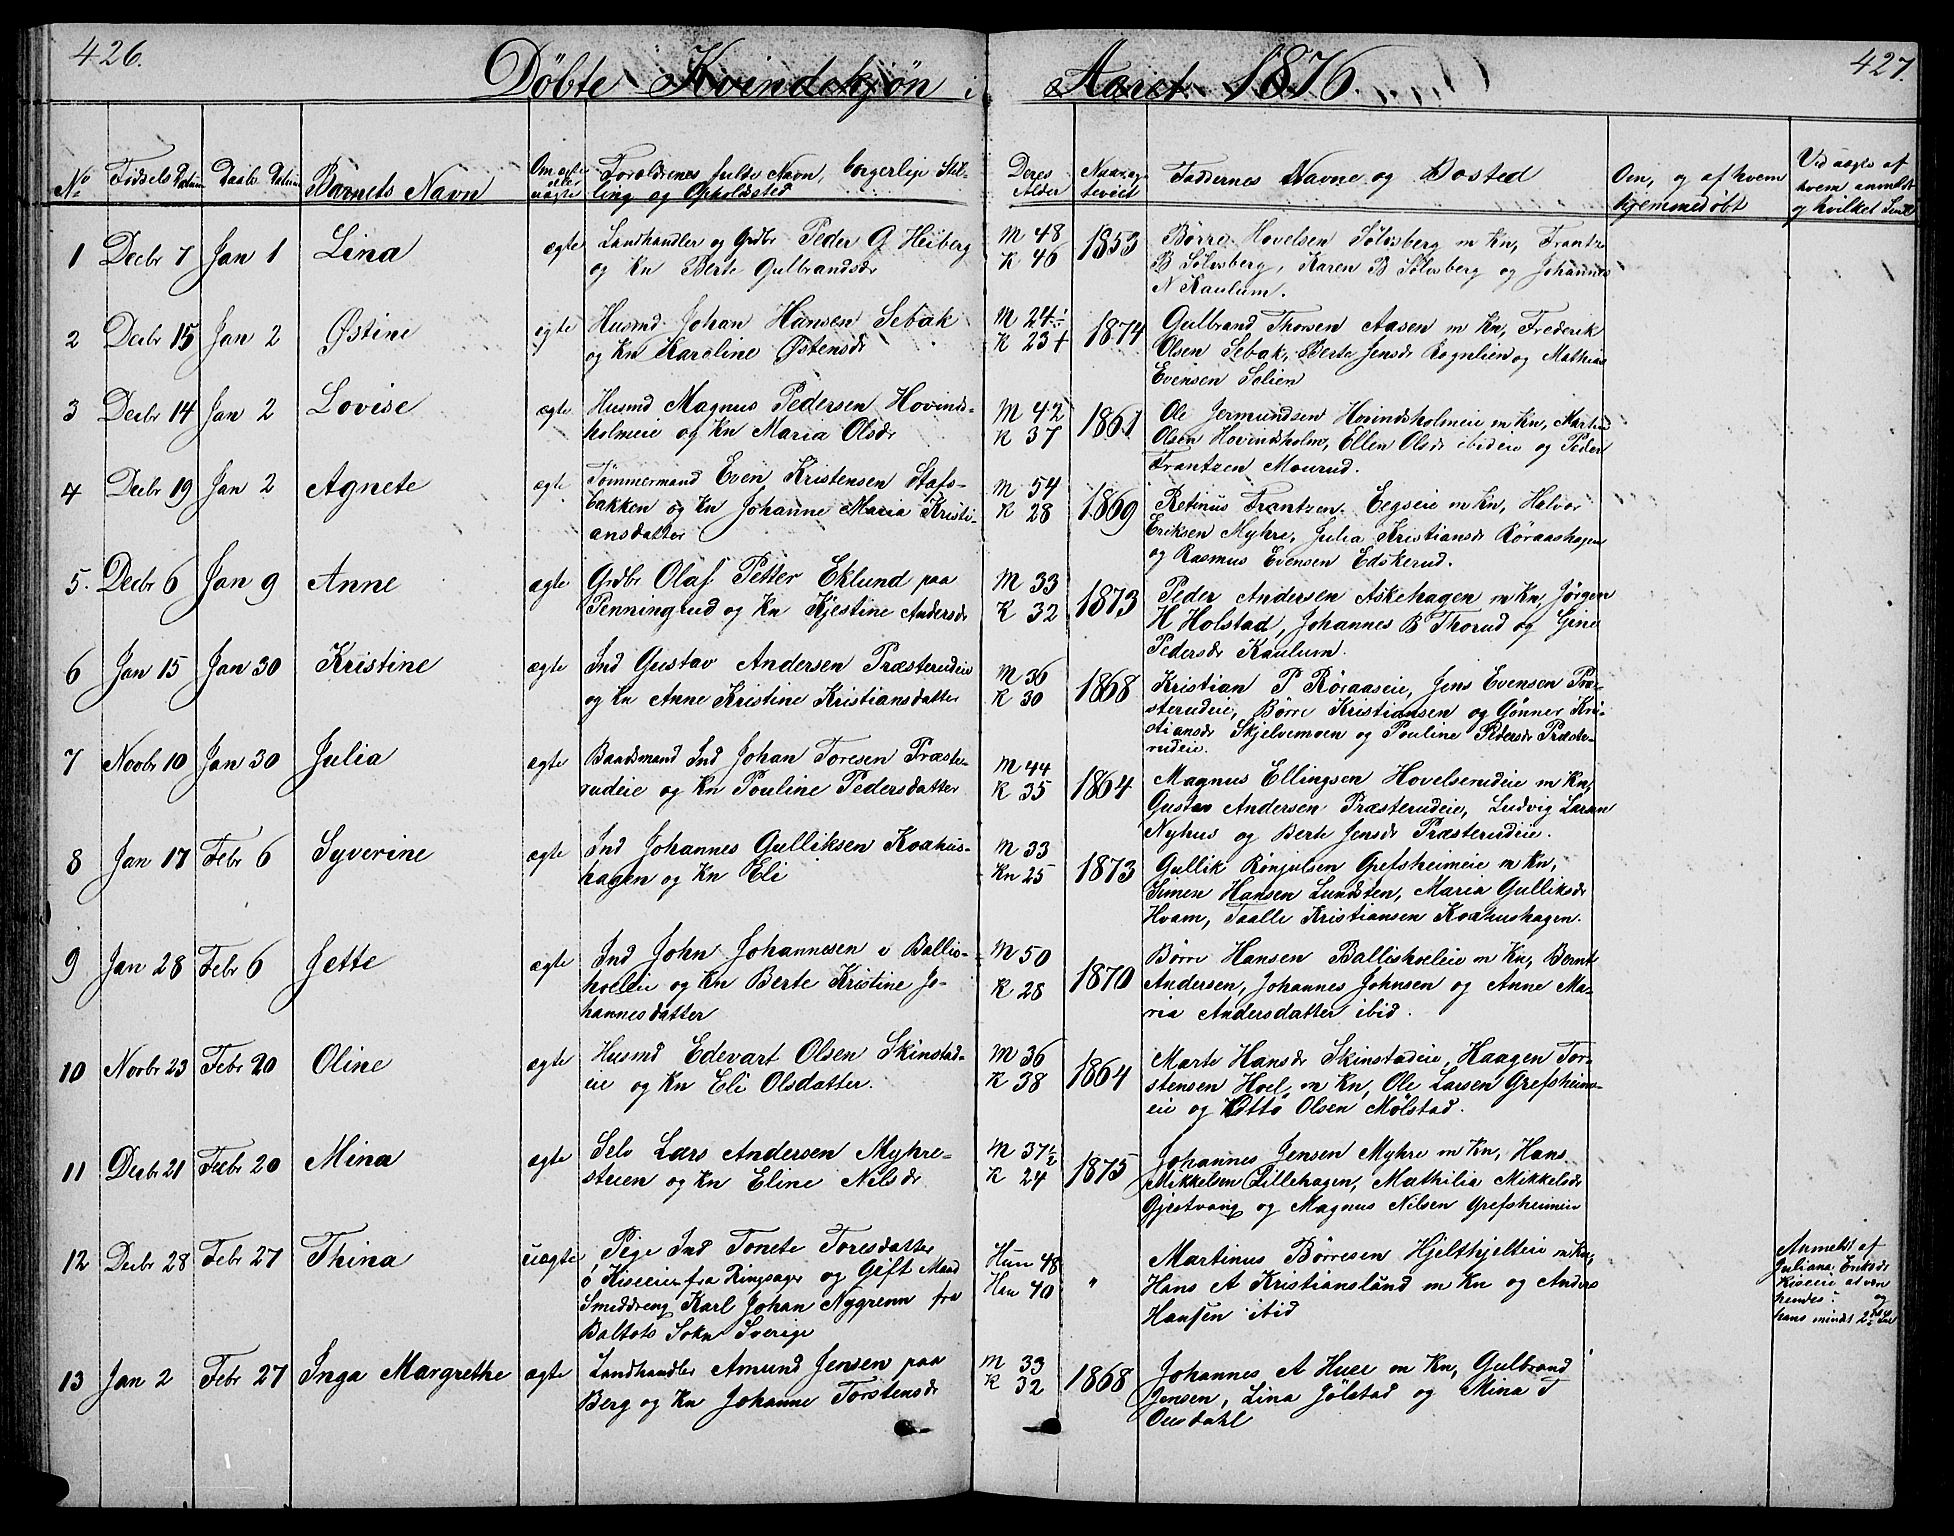 426.
427.
Döbte Kvindekjøn i Aaret 1876.
No
Fødsels Datum
Daabs Datum
Barnets Navn
Om ægte eller uægte
Forældrenes fulde Navn, borgerlige Stilling og Opholdsted
Deres Alder
Naar ægteviet
Faddernes Navne og Bosted
Om, og af hvem hjemmedøbt
Ved uægte af hvem anmeldt og hvilket Leie
1 Decbr 7 Jan 1 Lina ægte
Landhandler og Grdbr Peder G Heiberg
og Kn Berte Gulbrandsdr
M 48
K 46
1853
Börre Hovelsen Sölvsberg m Kn, Frantz
B Sölvsberg, Karen B Sölvsberg og Johannes
N Kaulum.
2 Decbr 15 Jan 2 Østine ægte
Husmd Johan Hansen Sebak
og Kn Karoline Østensdr
M 24
K 23
1874
Gulbrand Thorsen Aasen m Kn, Frederik
Olsen Sebak, Berte Jensdr Rognlien og Mathias
Evensen Solien
3 Decbr 14 Jan 2 Lovise ægte
Husmd Magnus Pedersen Hovinds-
holmeie og Kn Maria Olsdr
M 42
K 37
1861
Ole Jermundsen Hovindsholmeie m Kn,
Olsen Hovindsholm, Ellen Olsdr ibideie og Peder
Frantzen Mourud.
4 Decbr 19 Jan 2 Agnete ægte
Tömmermand Even Kristensen Stafs-
bakken og Kn Johanne Maria Kristi-
ansdatter
M 54
K 28
1869
Retinus Frantzen Eegseie m Kn, Halvor
Eriksen Myhre, Julia Kristiansdr Röraashagen
og Rasmus Evensen Edskerud.
5. Decbr 6 Jan 9 Anne ægte
Grdbr Olaf Petter Eklund paa
Penningrud og Kn Kjestine Andersdr
M 33
K 32
1873
Peder Andersen Askehagen m Kn, Jörgen
H Holstad, Johannes B Thorud og Gine
Pedersdr Kaulum.
6 Jan 15 Jan 30 Kristine ægte
Ind Gustav Andersen Præsterudeie
og Kn Anne Kristine Kristiansdatter
M 36
K 30
1868
Kristian P Röraaseie, Jens Evensen Præ-
sterudeie, Börre Kristiansen og Gönner Kri-
stiansdr Skjelvemoen og Pouline Pedersdr Præste-
rudeie.
7 Novbr 10 Jan 30 Julia ægte
Baadsmand Ind Johan Toresen Præste-
rudeie og Kn Pouline Pedersdatter
M 44
K 35
1864
Magnus Ellingsen Hovelsrudeie m Kn,
Gustav Andersen Præsterudeie, Ludvig Larsen
Nyhus og Berte Jensdr Præsterudeie.
8 Jan 17 Febr 6 Syverine ægte
Ind Johannes Gulliksen Koahus-
hagen og Kn Eli
M 33
Kn 25
1873
Gullik Ronjulsen Grefsheimeie m Kn,
Simen Hansen Lundsten, Maria Gulliksdr
Hvam, Taalle Kristiansen Koahushagen.
9 Jan 28 Febr 6 Jette ægte
Ind John Johannesen i Ballis-
hoelen og Kn Berte Kristine Jo-
hannesdatter
M 50
K 28
1870
Börre Hansen Ballishoeleie m Kn, Bernt
Andersen, Johannes Johnsen og Anne Ma-
ria Andersdatter ibid.
10 Novbr 23 Febr 20 Oline ægte
Husmd Edevart Olsen Skinstad-
eie og Kn Eli Olsdatter.
M 36
K 38
1864
Marte Hansdr Skinstadeie, Haagen Tor-
stensen Hoel, m Kn, Ole Larsen Grefsheim-
eie og Otto Olsen Mölstad.
11 Decbr 21 Febr 20 Mina ægte
Selv Lars Andersen Myhre-
stuen og Kn Eline Nilsdr
M 37½
K 24
1875
Johannes Jensen Myhre m Kn, Hans
Mikkelsen Lillehagen, Mathilia Mikkelsdr
Gjestvang og Magnus Nilsen Grefsheimeie
12 Decbr 28 Febr 27 Thina uægte
Pige Ind Tonete Toresdatter
ö Kiseeie fra Ringsager og Gift Mand
Smeddreng Karl Johan Nygrenn fra
Boltots Sokn Sverige
Hun 48
Han 40
"
Martinus Börresen Hjelthjelteie m Kn,
Hans A Kristianslund m Kn og Anders
Hansen ibid
Anmeldt af
Juliana Eriksdr
Kiseeie at være
hendes og
hans mindst 2det Leie
13 Jan 2 Febr 27 Inga Margrethe ægte
Landhandler Amund Jensen paa
Berg og Kn Johanne Torstensdr
M 33
K 32
1868
Johannes A Huse m Kn, Gulbrand
Jensen, Lina Jölstad og Mina T
Ousdahl